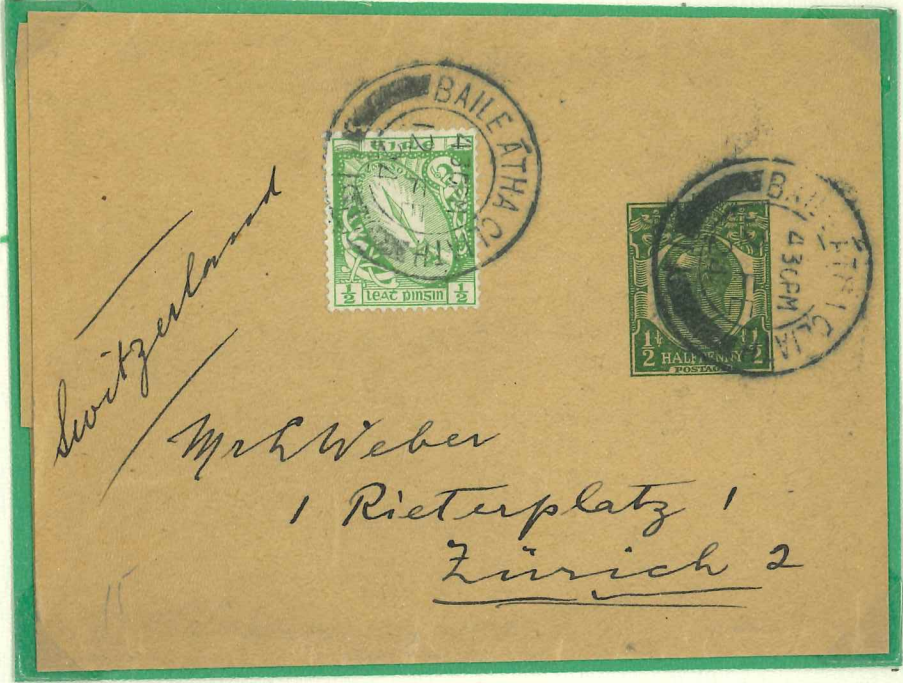 BAILE ÁTHA CL
430PM
½ leat pingin ½
BAI
ÁTHA CLIA
430PM
½ ½
HALFPENNY
POSTAGE
Switzerland
Mr L Weber
1 Rieterplatz 1
Zürich 2
15